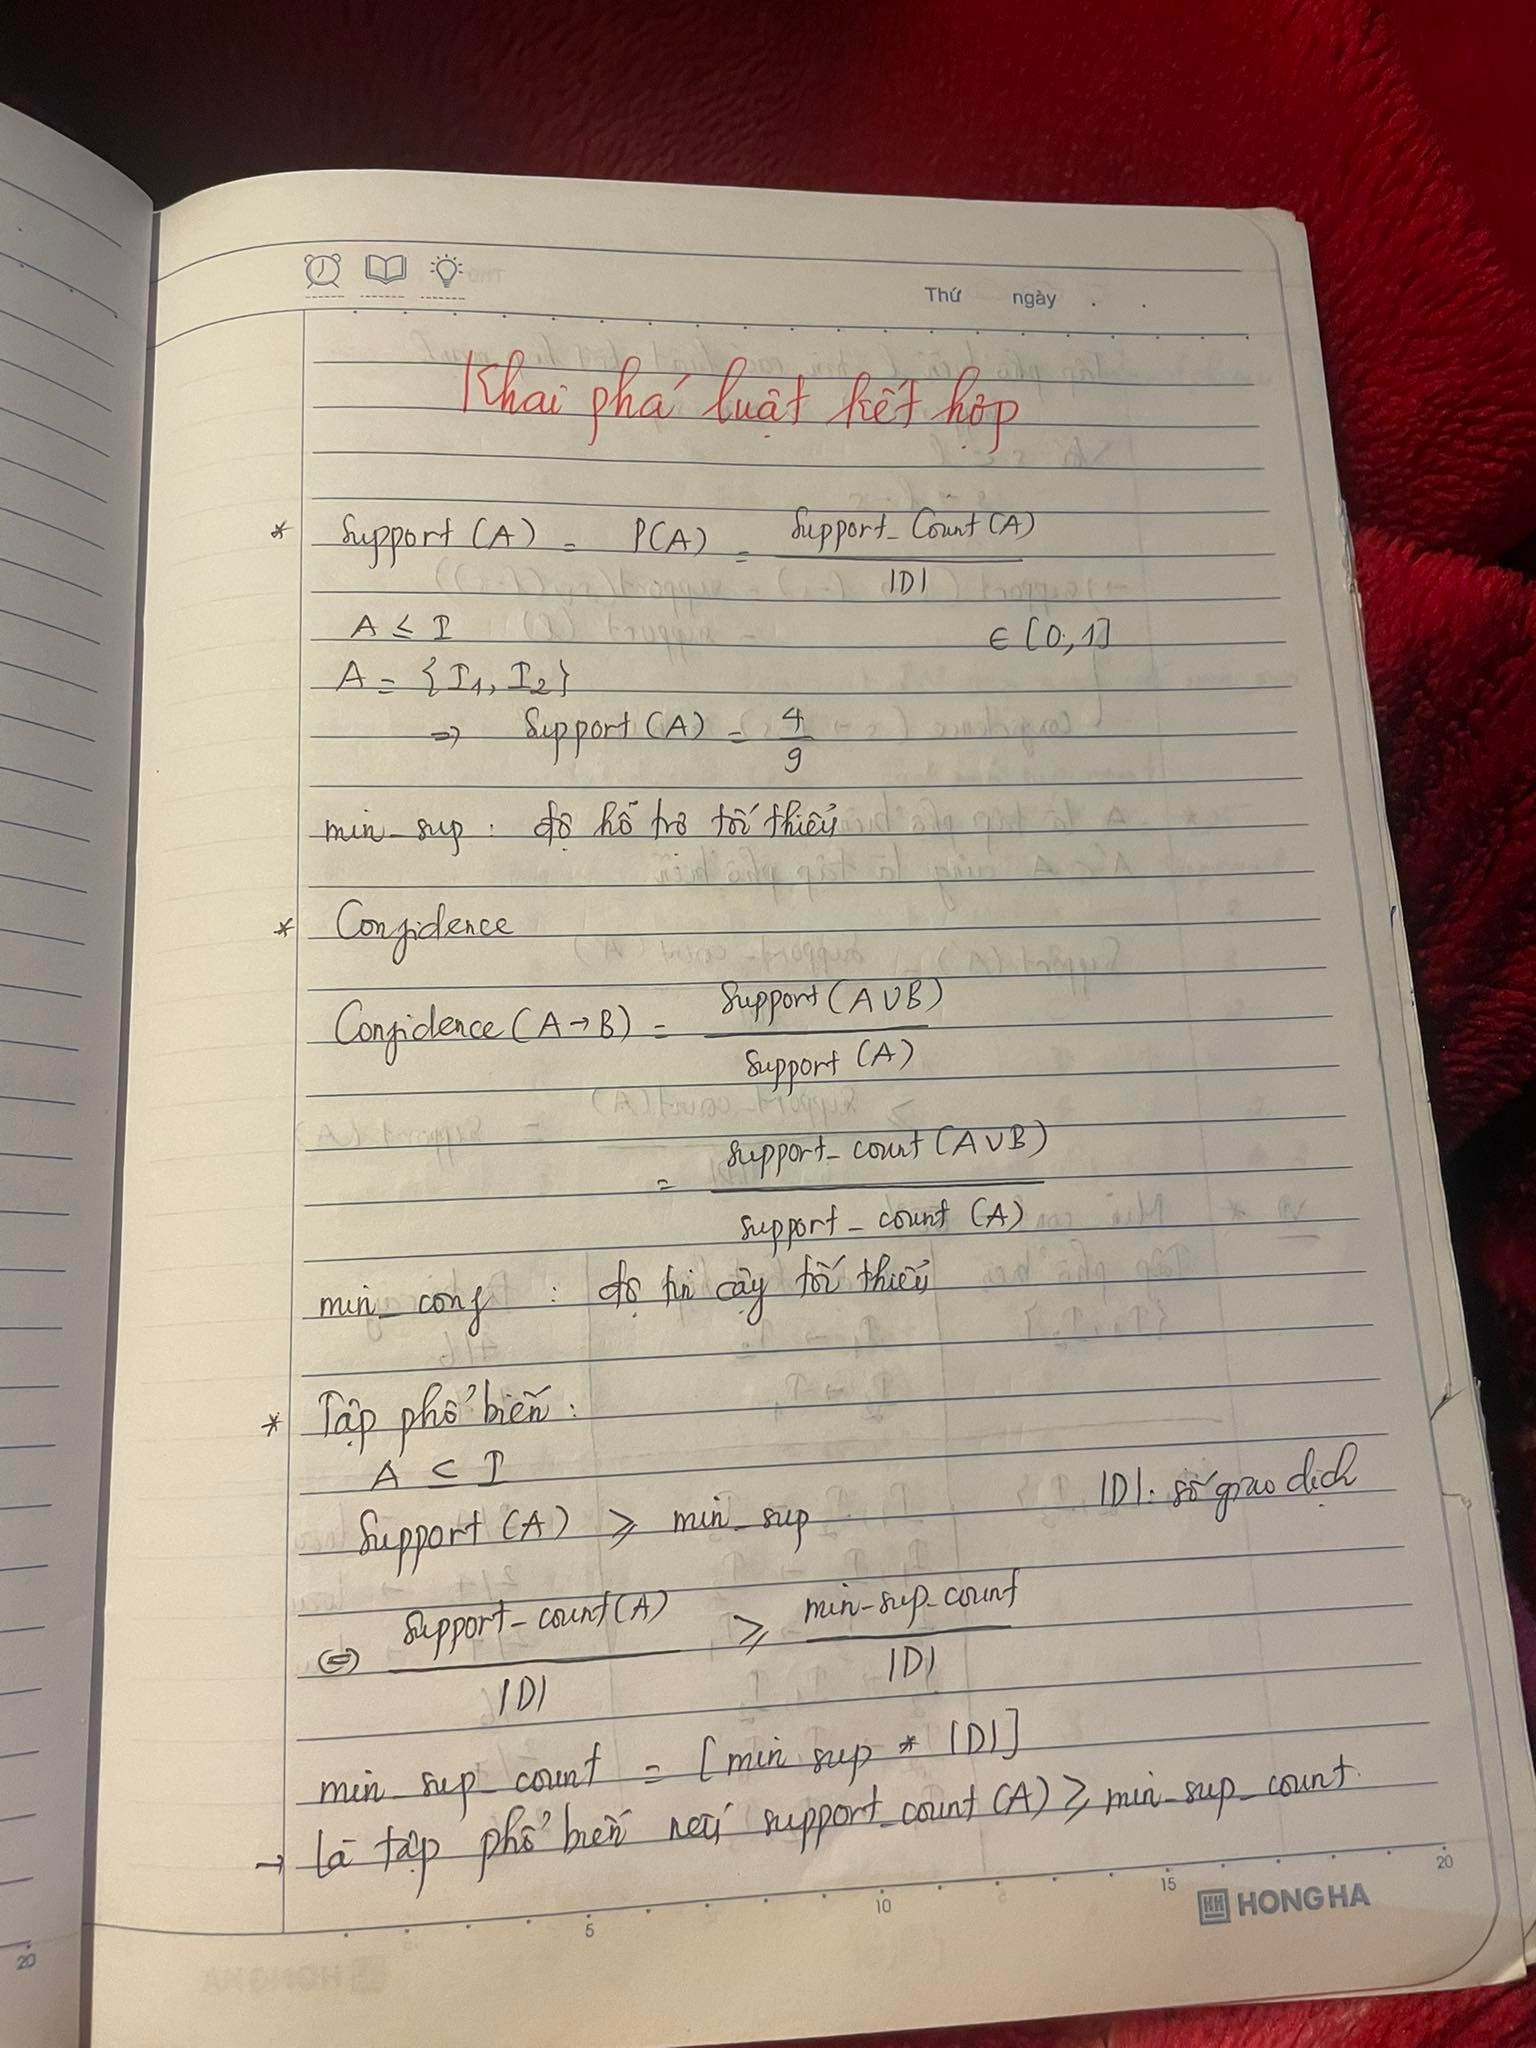 Thứ ngày . .
Khai phá luật kết hợp
* Support (A) = P(A) = Support_Count (A) / |D|
A ≤ I ∈ [0,1]
A = {I1, I2}
⇒ Support (A) = 4/9
min_sup : độ hỗ trợ tối thiểu
* Confidence
Confidence (A→B) = Support (A∪B) / Support (A)
= support_count (A∪B) / support_count (A)
min_conf : độ tin cậy tối thiểu
* Tập phổ biến :
A ⊂ I
|D|: số giao dịch
Support (A) ⩾ min_sup
⇔ support_count(A) / |D| ⩾ min_sup_count / |D|
min_sup_count = [min sup * |D|]
→ là tập phổ biến nếu support_count (A) ⩾ min_sup_count.
5 10 15 20
HONG HA
20